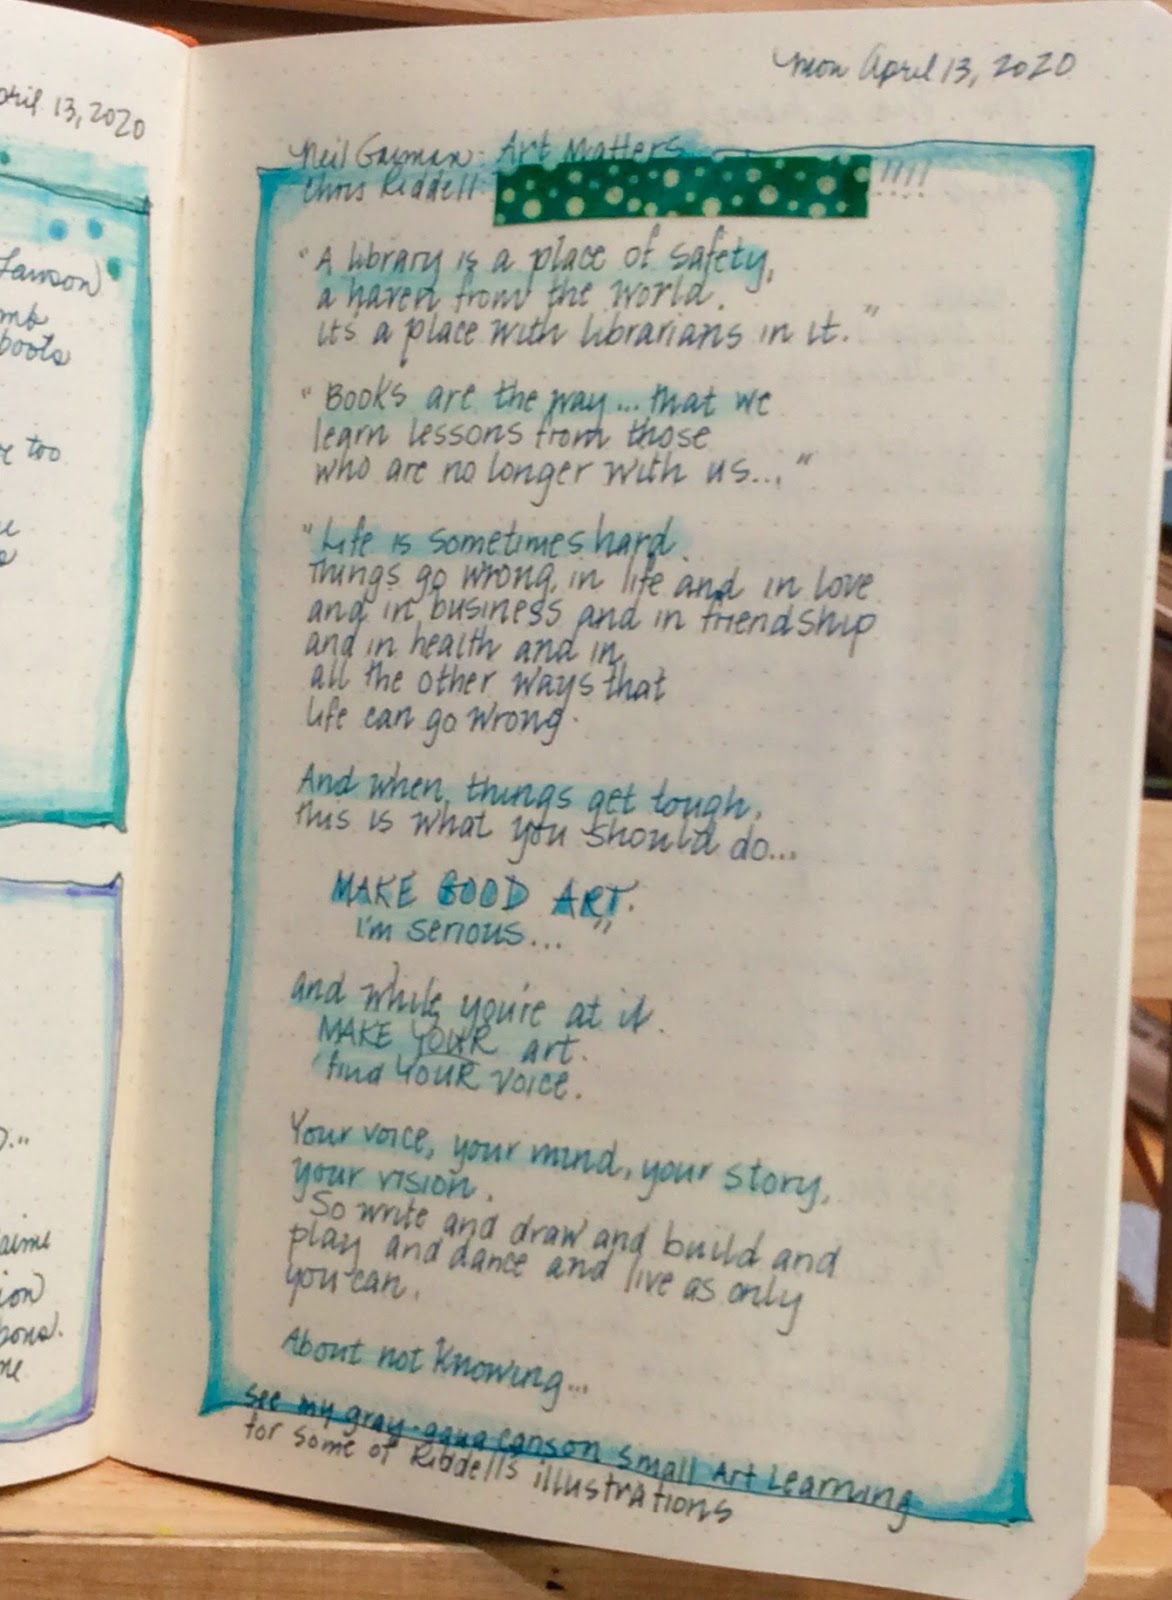 april 13, 2020
Lawson
boots
too
mon April 13, 2020
Neil Gaiman: Art Matters
Chris Riddell: !!!!
"A library is a place of safety,
a haven from the world.
it's a place with librarians in it."
"Books are the way... that we
learn lessons from those
who are no longer with us..."
"Life is sometimes hard.
Things go wrong, in life and in love
and in business and in friendship
and in health and in
all the other ways that
life can go wrong.
And when things get tough,
this is what you should do...
MAKE GOOD ART.
I'm serious... "
and while you're at it.
MAKE YOUR art.
find YOUR voice.
Your voice, your mind, your story,
your vision.
So write and draw and build and
play and dance and live as only
you can.
About not knowing...
see my gray-aqua canson small Art Learning
for some of Riddell's illustrations